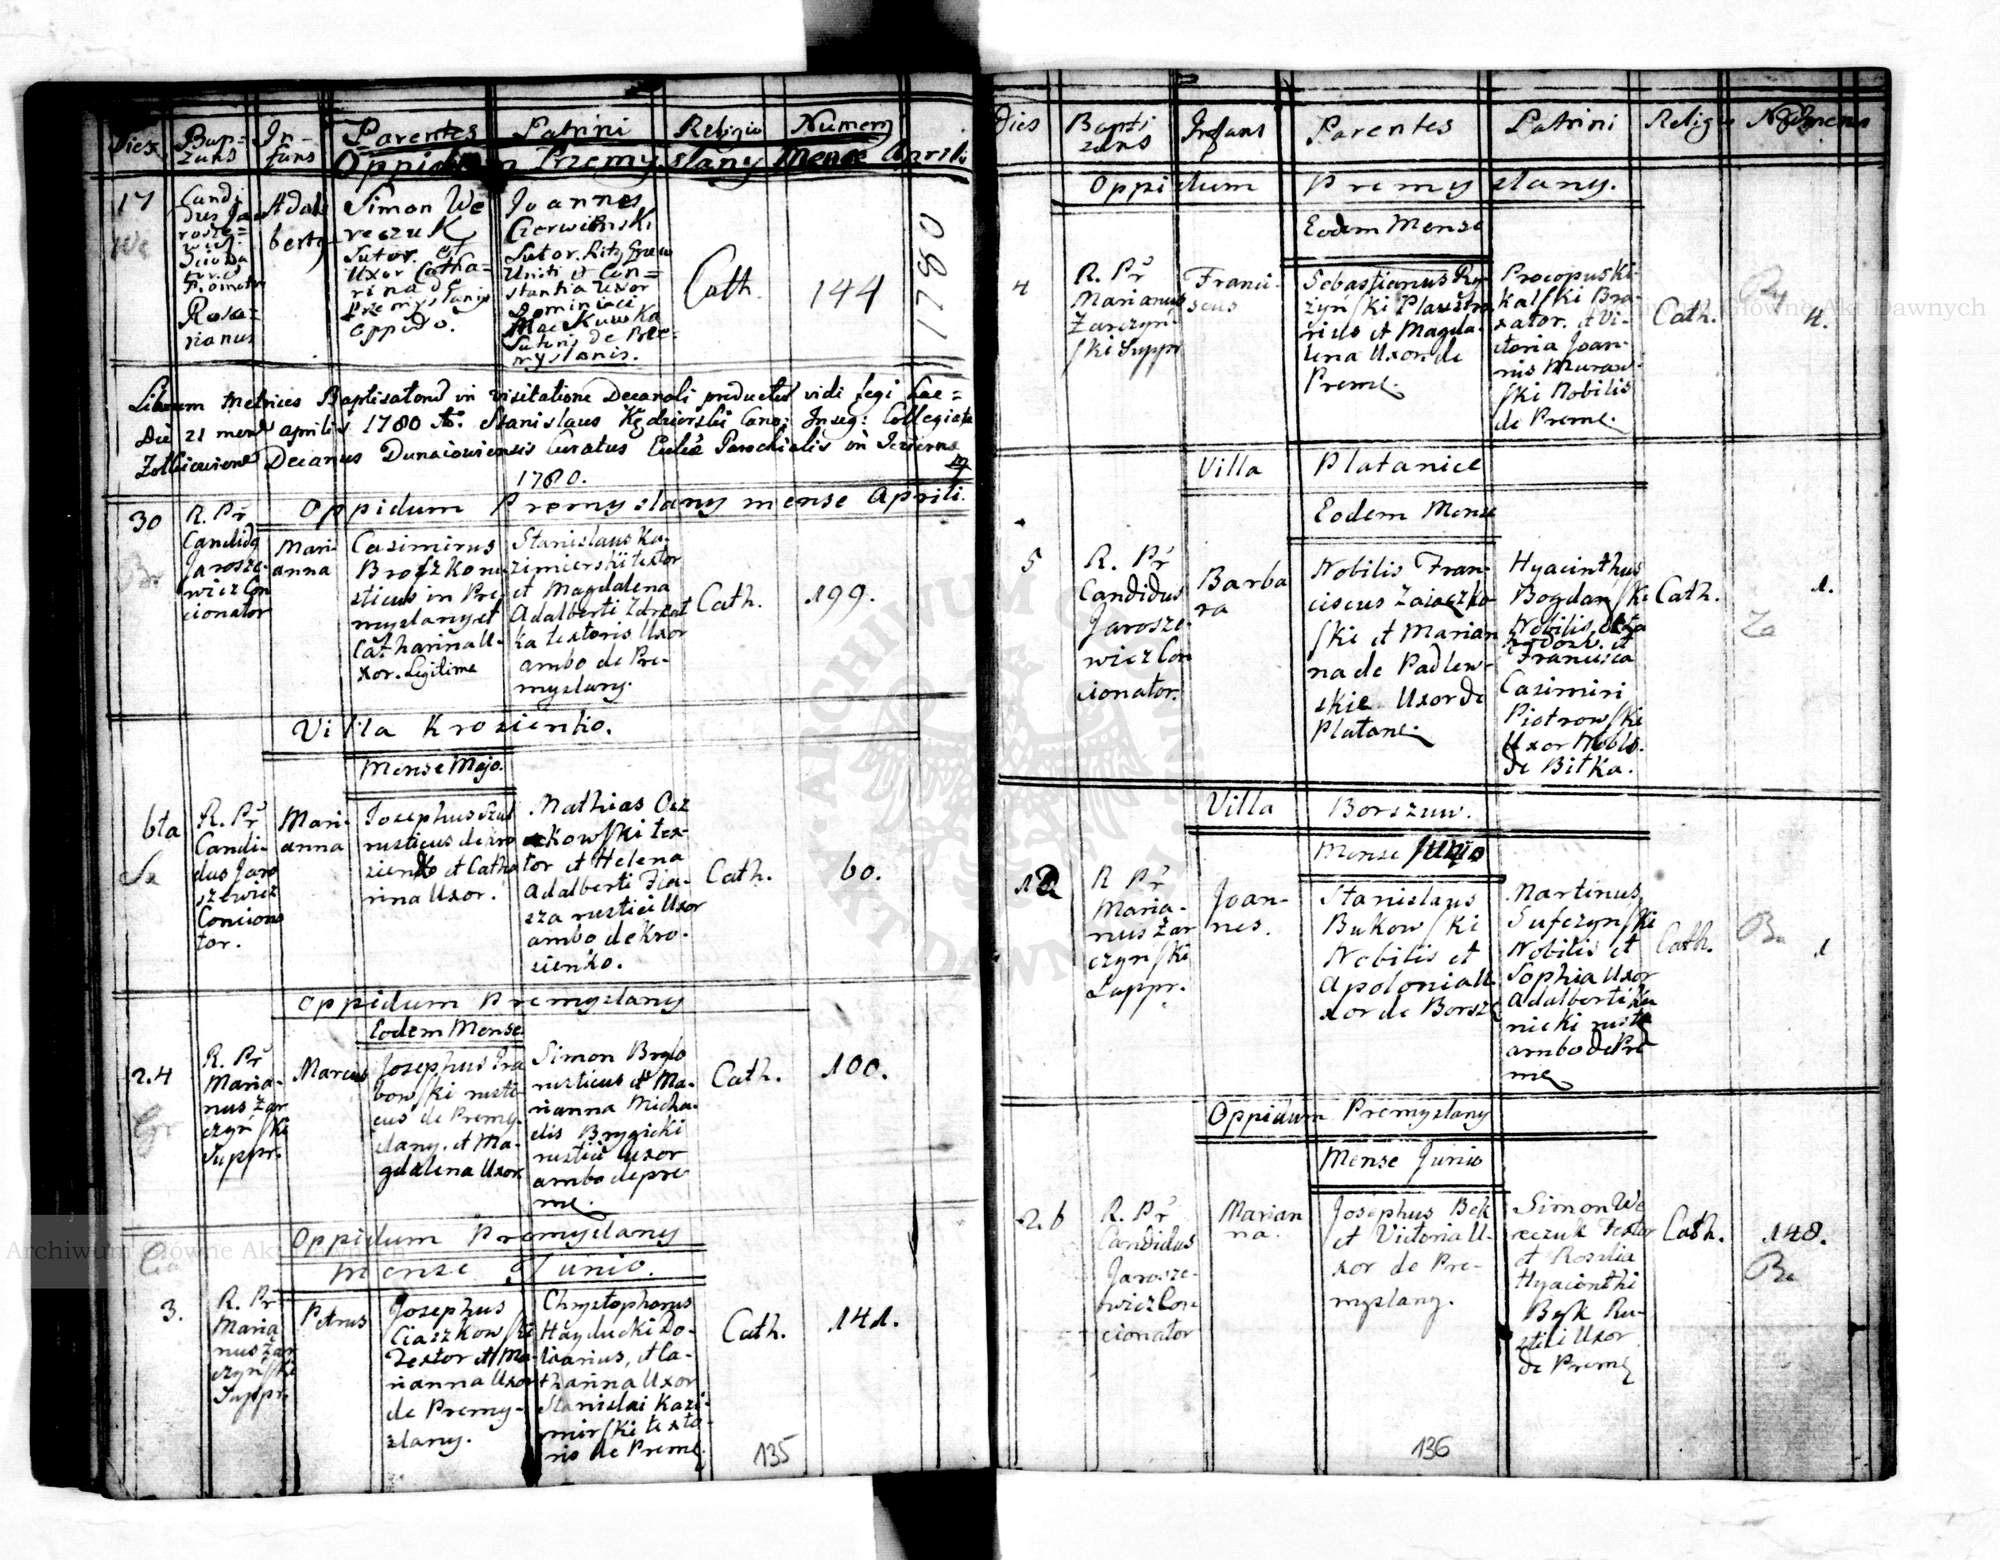 Dies
Bap=
zans
In-
fans
Parentes
Patrini
Religio
Numen
Oppidum Premyslany Mense Aprili
17
Candi
dus Jaa
rosze=
wicz
Rosa=
rianus
Adal
berty
Simon We
reczuk
Sutor. et
Uxor Catha=
rina de
Przemyslanis
oppido.
Joannes
Czerwinski
Sutor. Ritg Grew
Uniti et Con=
stantia Uxor
Dominici
Mackuwka
Sutoris de Prze=
myslanis.
Cath.
144
1780
Librum Metrices Baptisatoru in visitatione Decanali productus vidi legi
Die 21 mens aprilis 1780 Ao. Stanislaus Kędzierski Cano: Inseg: Collegiata
Decanus Dunaioviensis Curatus Ecclẽ Parochialis in
1780.
Oppidum Premyslany mense Aprili.
30
R. Pr
Candidg
Jarosze-
wicz Con
cionator
Mari-
anna
Casimirus
Broszkow
sticus in Pre
myslany et
Catharina U-
xor. Legitime
Stanislaus Ka-
zimierski textor
et Magdalena
Adalberti
ka textoris Uxor
ambo de Pre-
myslany.
Cath.
199.
Villa Krosienko.
Mense Majo.
6ta
R. Pr
Candi-
dus Jaro
szewicz
Conciona
tor.
Mari-
anna
Josephus Szul
rusticus de kro
sienko et Catha
rina Uxor.
Mathias Occ
kowski tex-
tor et Helena
Adalberti Fia-
sza rustici Uxor
ambo de Kro-
sienko.
Cath.
60.
Oppidum Premyslany
Eodem Mense
24
R. Pr
Maria-
nus Zar
czyński
Suppr.
Marcus
Josephus Gra
bowski rusti-
cus de Premy-
slany. et Ma-
gdalena Uxor.
Simon Brylo
rusticus et Ma-
rianna Micha-
elis Brygicki
rustici uxor
ambo de pre
me.
Cath.
100.
Oppidum Premyslany
mense Junio.
3.
R. Pr
Maria
nus Zar
czyński
Suppr.
Petrus
Josephus
Ciaszkowski
Textor et Ma-
rianna Uxor
de Premy-
slany.
Chrystophorus
Hayducki Do-
liarius, et Ca-
tharina Uxor
Stanislai Kazi-
mirski texto-
ris de Preme.
Cath.
141.
135
Dies
Bapti
zans
Infans
Parentes
Patrini
Religio
Numens
Oppidum Premyslany.
Eodem Mense
4
R. Pr
Marianus
Zarczyń-
ski Suppr
Franci-
scus
Sebastianus Ry-
żyński Plaustra
rius et Magda-
lena Uxor de
Preme.
Procopus Ki-
kalski Bra-
xator. et Vi-
ctoria Joan-
nis Muraw-
ski Nobilis
de Preme.
Cath.
4.
Villa Platanice
Eodem Mense
5
R. Pr
Candidus
Jarosze-
wicz Con
cionator.
Barba
ra
Nobilis Fran-
ciscus Zaiączko-
ski et Marian
na de Padlew-
skie Uxor de
Platane.
Hyacinthus
Bogdanski
Nobilis
Francisca
Casimiri
Piotrowski
Uxor Nobls.
de Bitka.
Cath.
1.
Za
Villa Borszuw.
Mense Junio
12
R Pr
Maria-
nus Zar
czyński
Suppr.
Joan-
nes.
Stanislaus
Bukowski
Nobilis et
Apolonia U
xor de Borsze
Martinus
Sufczynski
Nobilis et
Sophia Uxor
Adalberti Ku
nicki rusti
ambo de Pre
me
Cath.
Bu
1
Oppidum Premyslany
Mense Junio
26
R. Pr
Candidus
Jarosze-
wicz Con
cionator
Marian
na.
Josephus Bek
et Victoria U-
xor de Pre-
myslany.
Simon We
reczuk Textor
et Rosalia
Hyacinthi
Byk Ru-
stici Uxor
de Preme
Cath.
148.
Be
136
Archiwum Główne Akt Dawnych
Archiwum Główne Akt Dawnych
ARCHIWUM GŁÓWNE AKT DAWNYCH